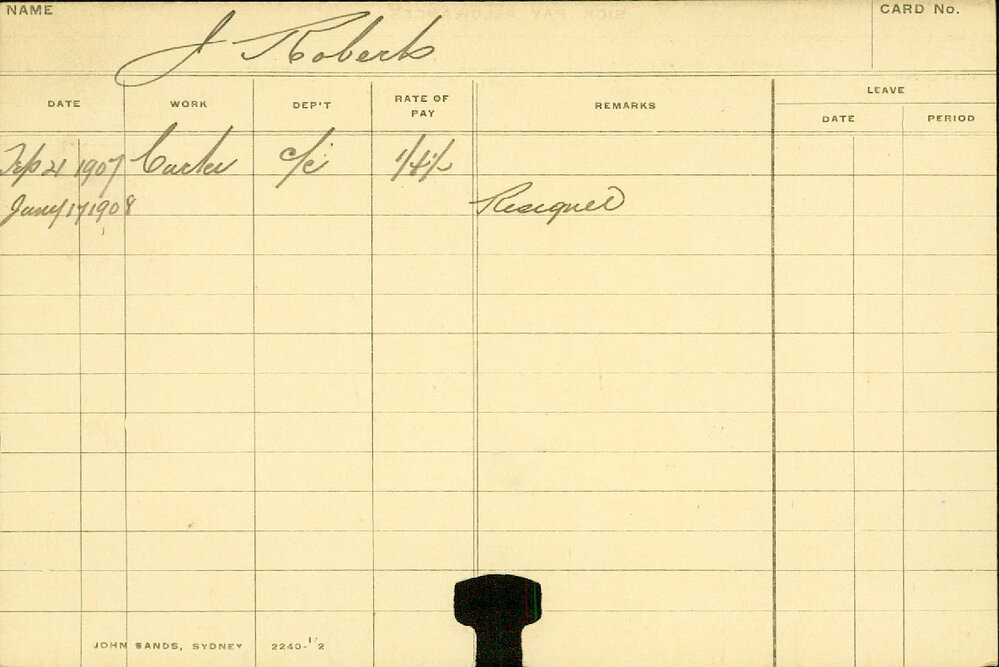 NAME
J Roberts
CARD No.
DATE WORK DEP'T RATE OF PAY REMARKS LEAVE
DATE PERIOD
1907 Carter c/c 1/4/-
Jany 17 1908 Resigned
JOHN SANDS, SYDNEY 2240-1/2